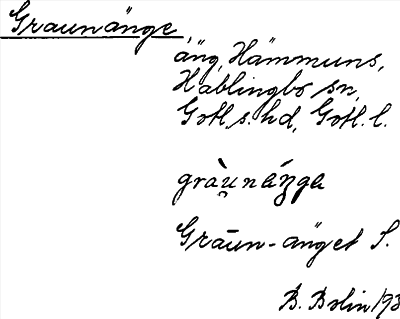 Graunänge,
äng, Hämmuns,
Hablingbo sn,
Gotl. s. hd, Gotl. l.
gràu̯nä́ŋgə
Graun-änget S.
B. Bolin 193